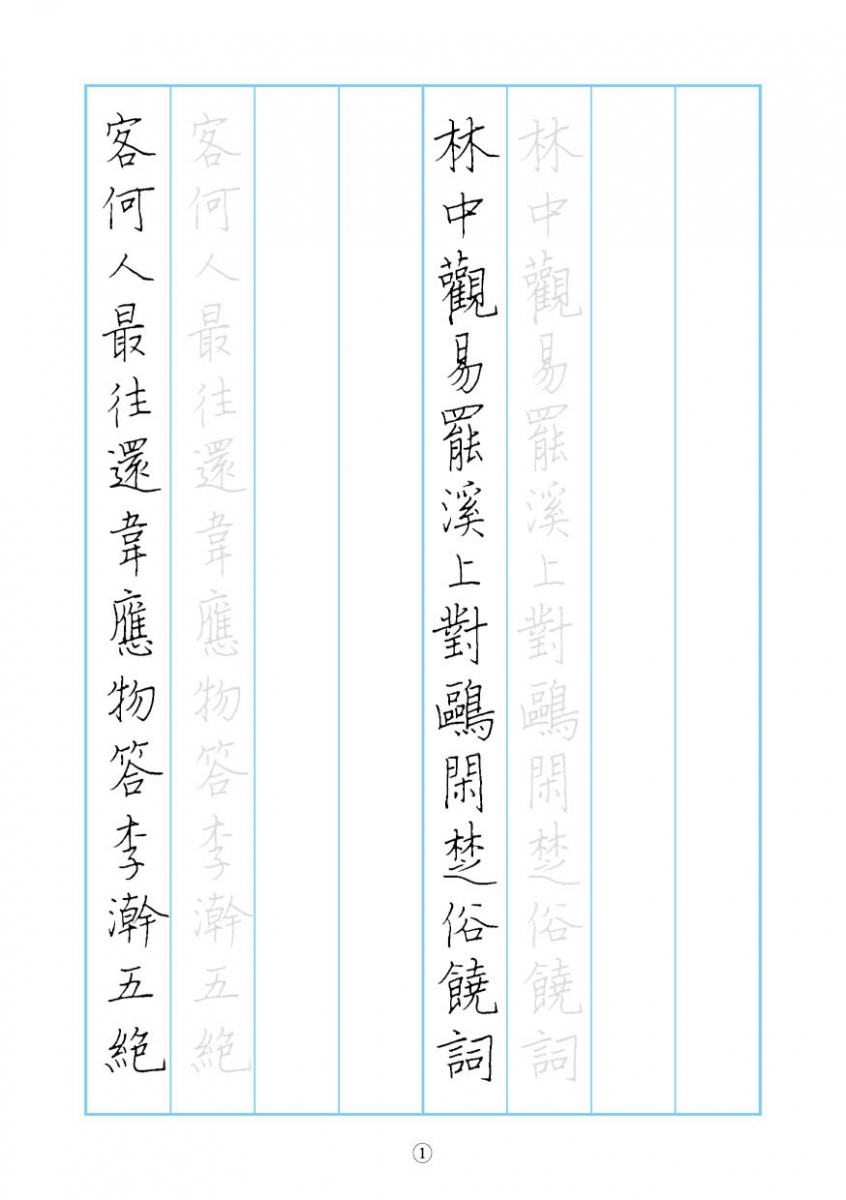 林中觀易罷溪上對鷗閑楚俗饒詞
林中觀易罷溪上對鷗閑楚俗饒詞
客何人最往還韋應物答李澣五絶
客何人最往還韋應物答李澣五絶
①